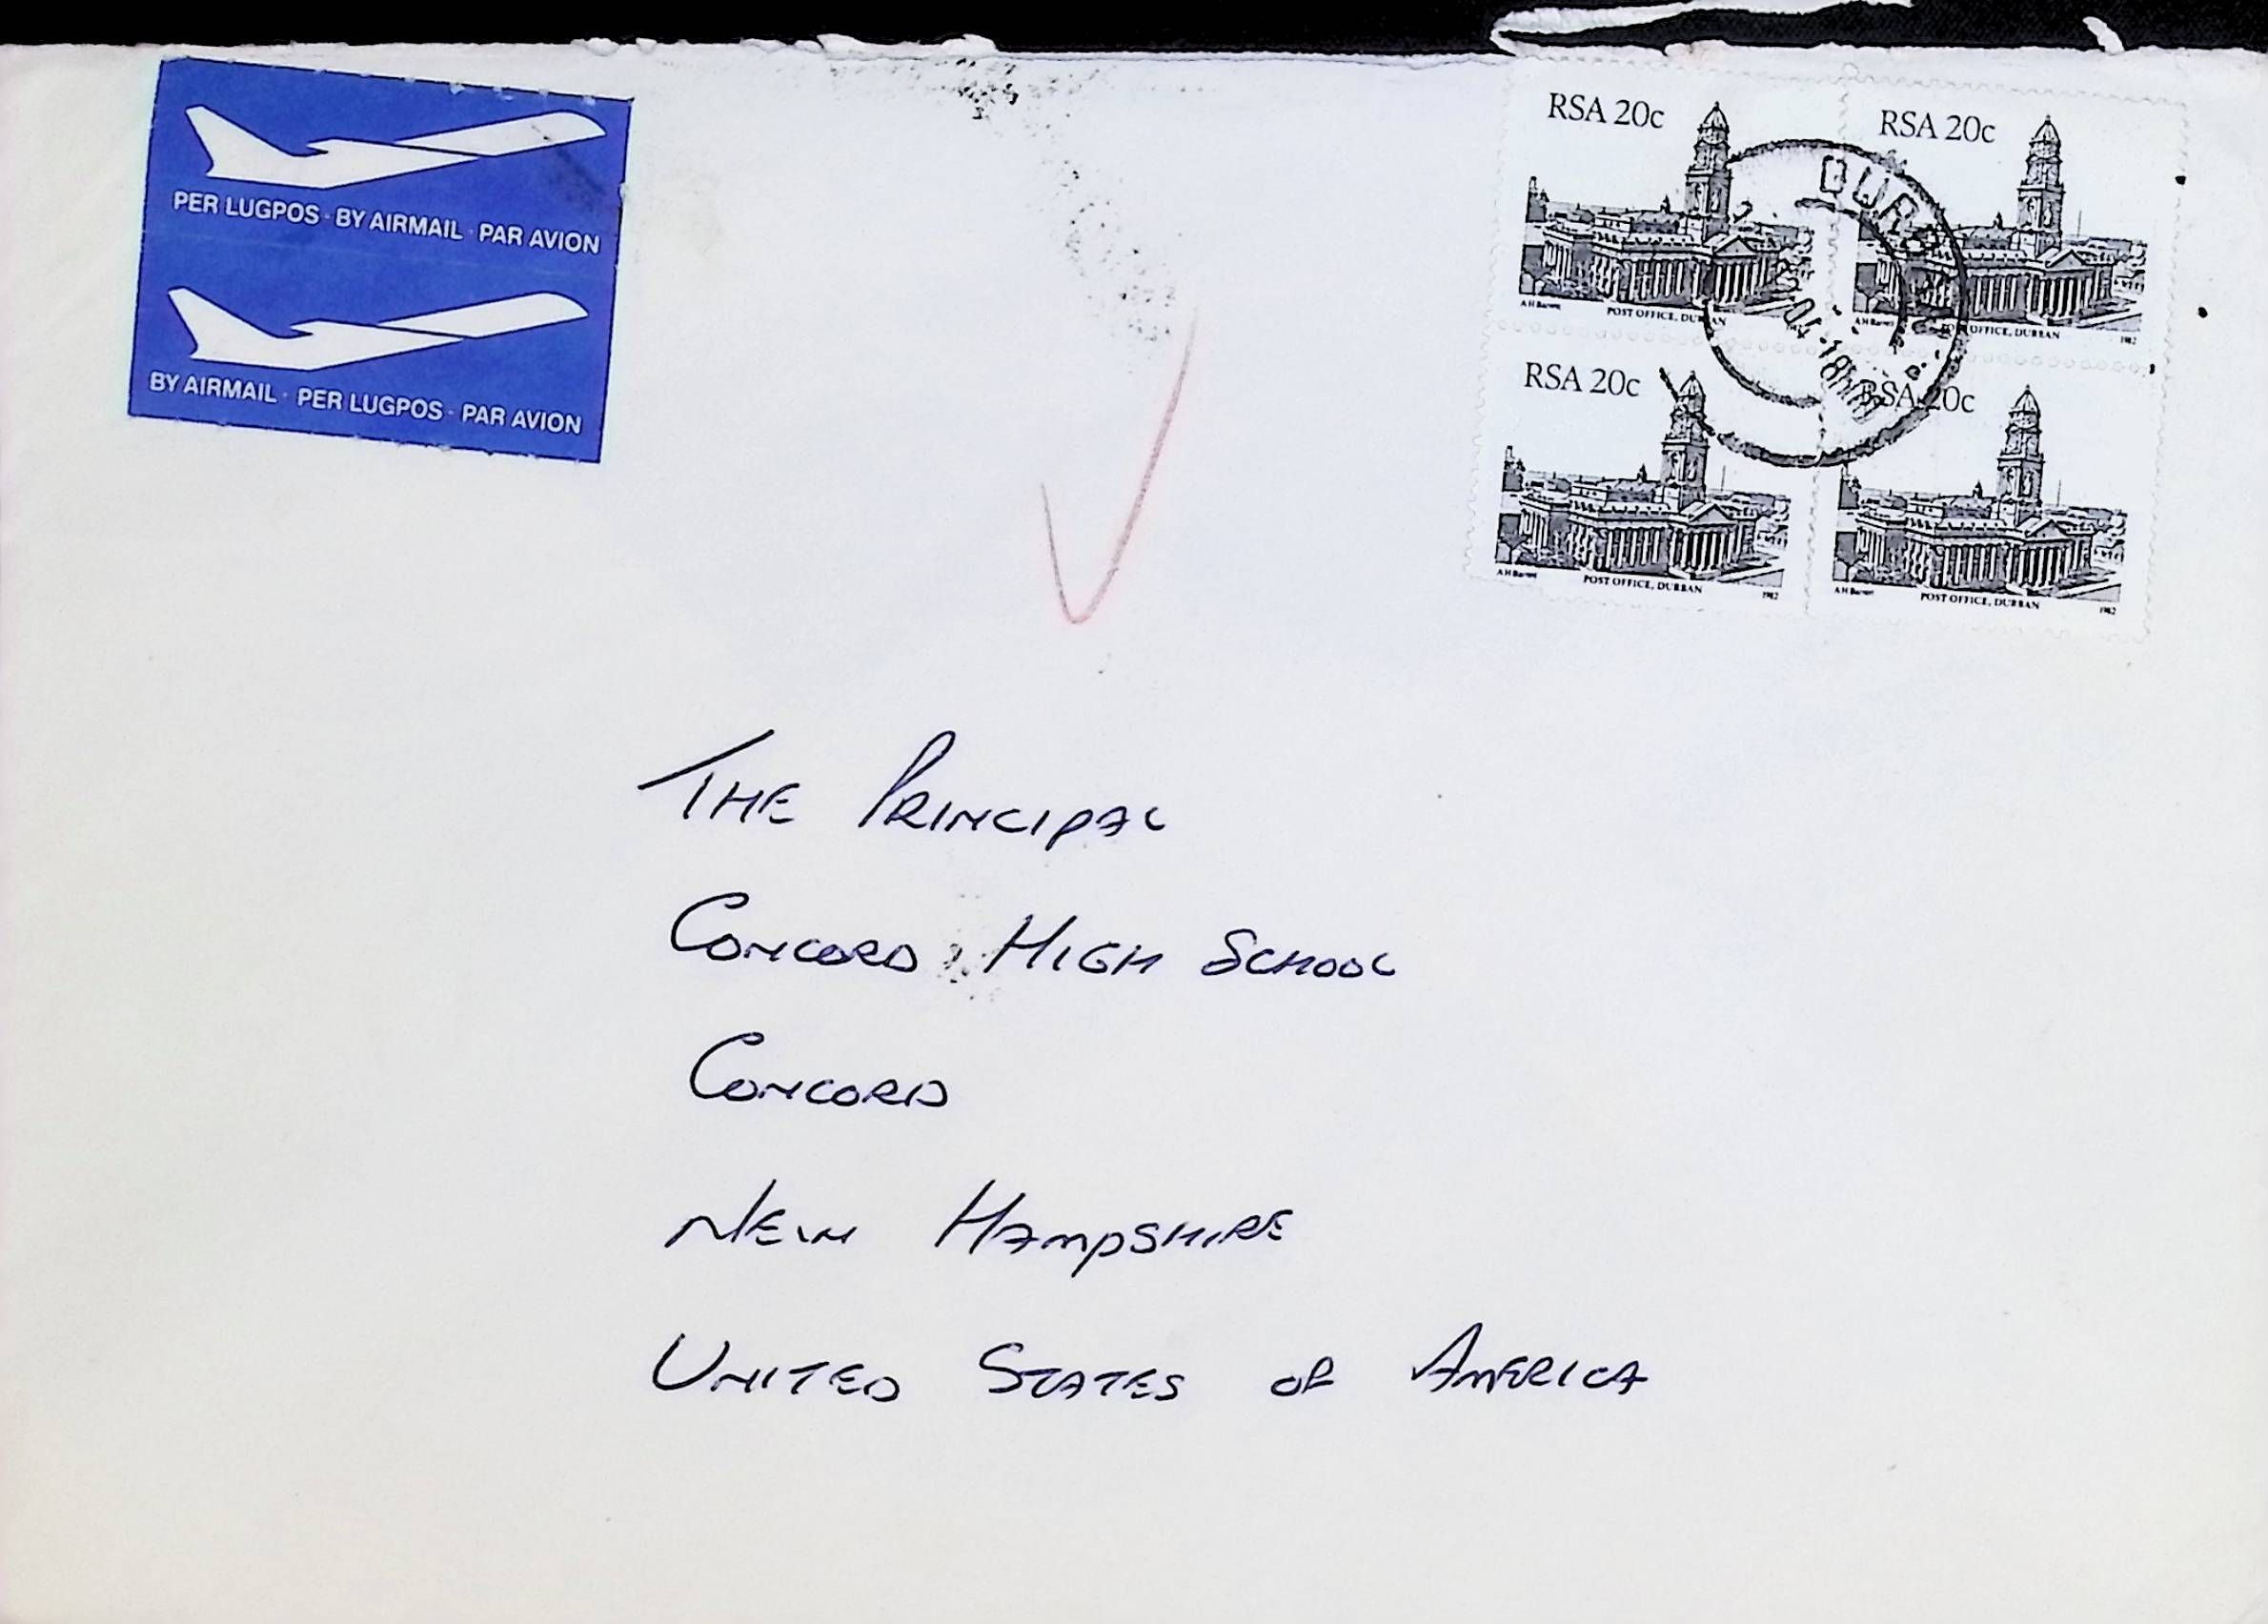 PER LUGPOS · BY AIRMAIL · PAR AVION
BY AIRMAIL · PER LUGPOS · PAR AVION
RSA 20c
A H Barrett
POST OFFICE, DURBAN
1982
RSA 20c
A H Barrett
POST OFFICE, DURBAN
1982
RSA 20c
A H Barrett
POST OFFICE, DURBAN
1982
RSA 20c
A H Barrett
POST OFFICE, DURBAN
1982
THE PRINCIPAL
CONCORD HIGH SCHOOL
CONCORD
NEW HAMPSHIRE
UNITED STATES OF AMERICA